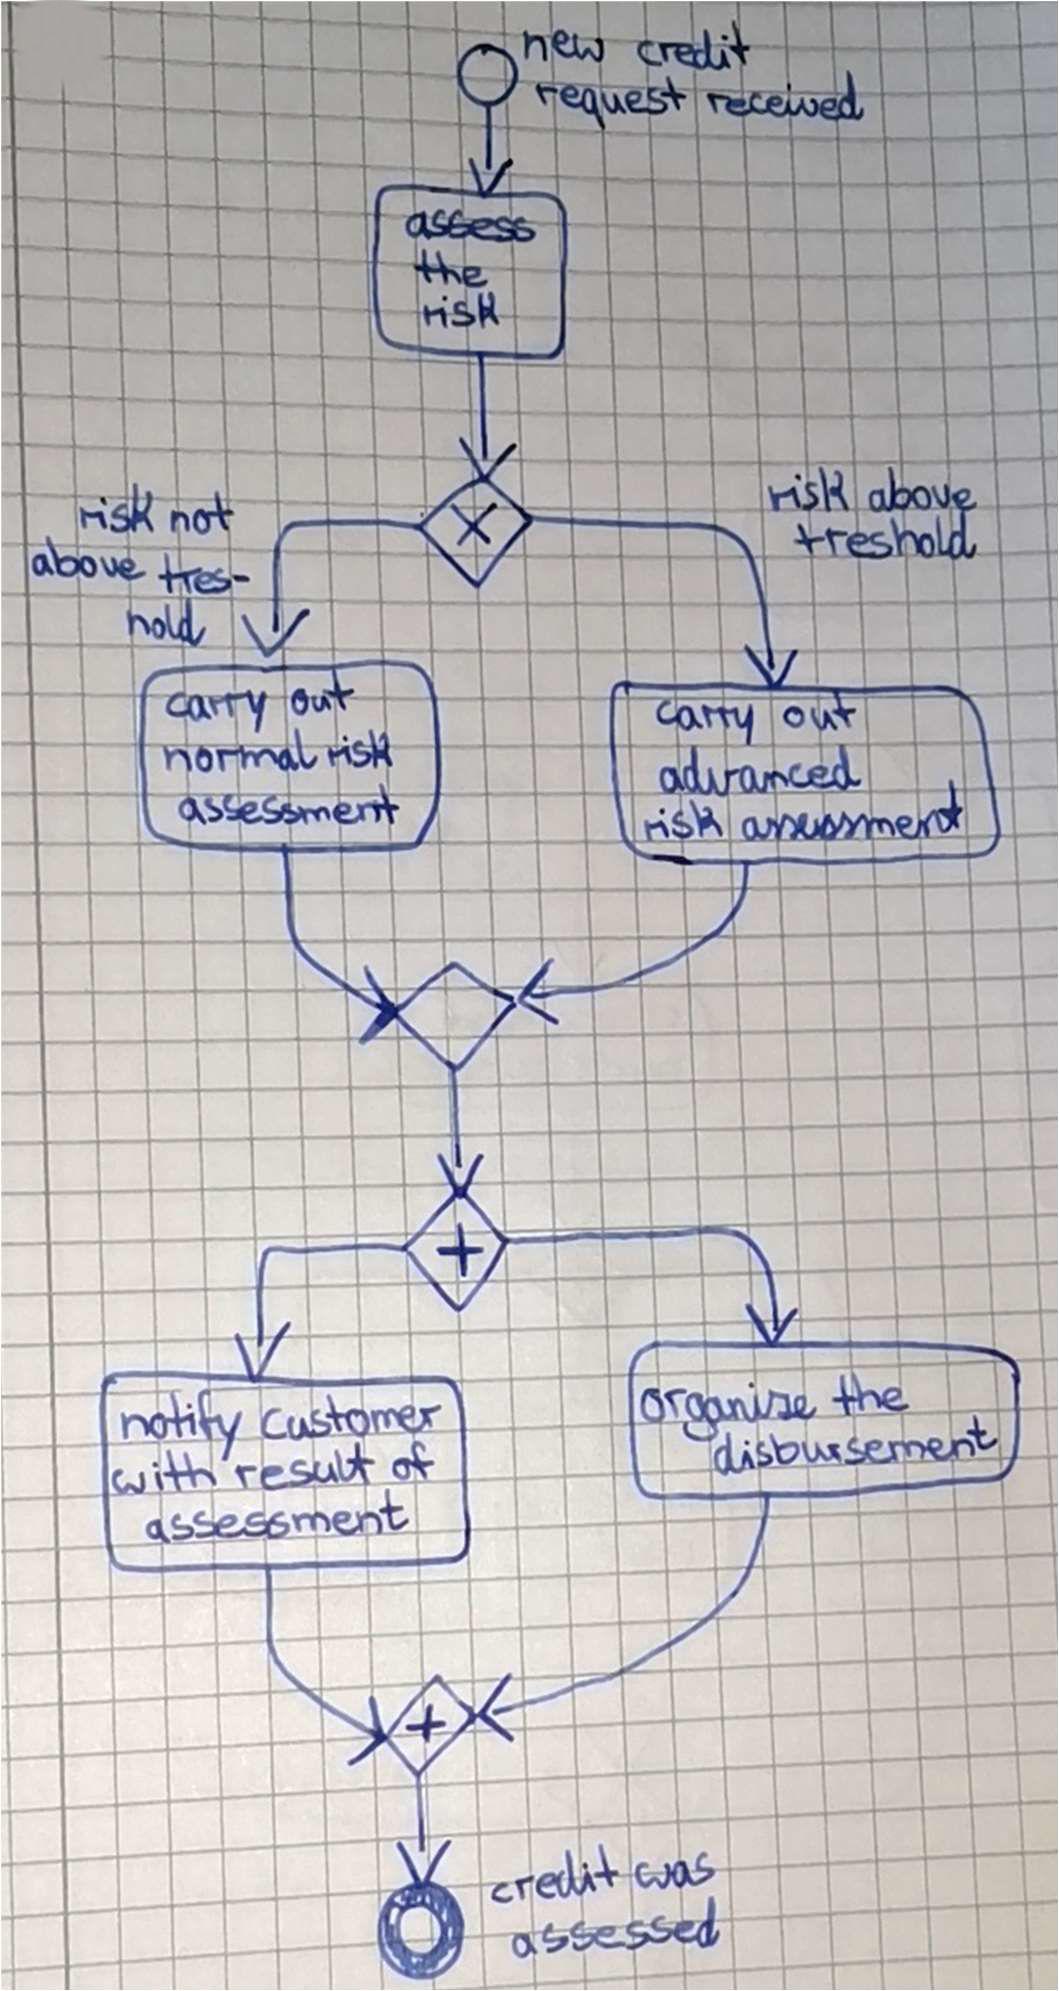 new credit
request received
assess
the
risk
risk not
above tres-
hold
risk above
treshold
carry out
normal risk
assessment
carry out
advanced
risk assessment
notify customer
with result of
assessment
organize the
disbursement
credit was
assessed